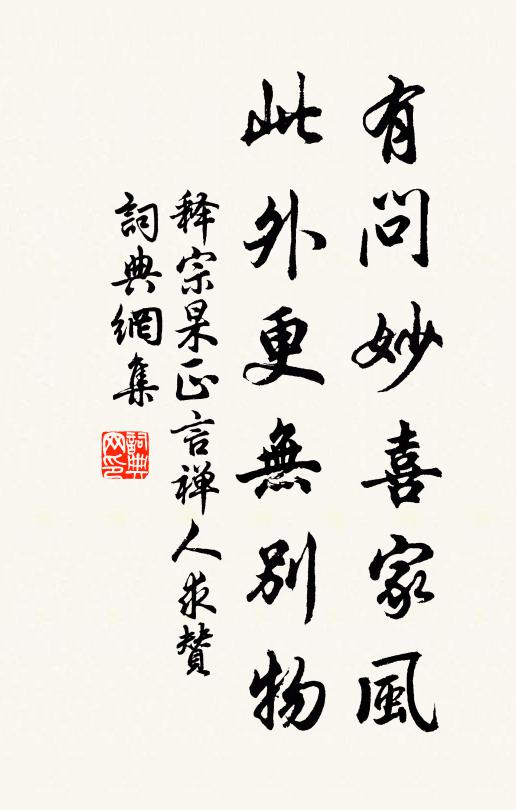 有問妙喜家風
此外更無別物
释宗杲正言禅人求贊
詞典網集
詞典网印